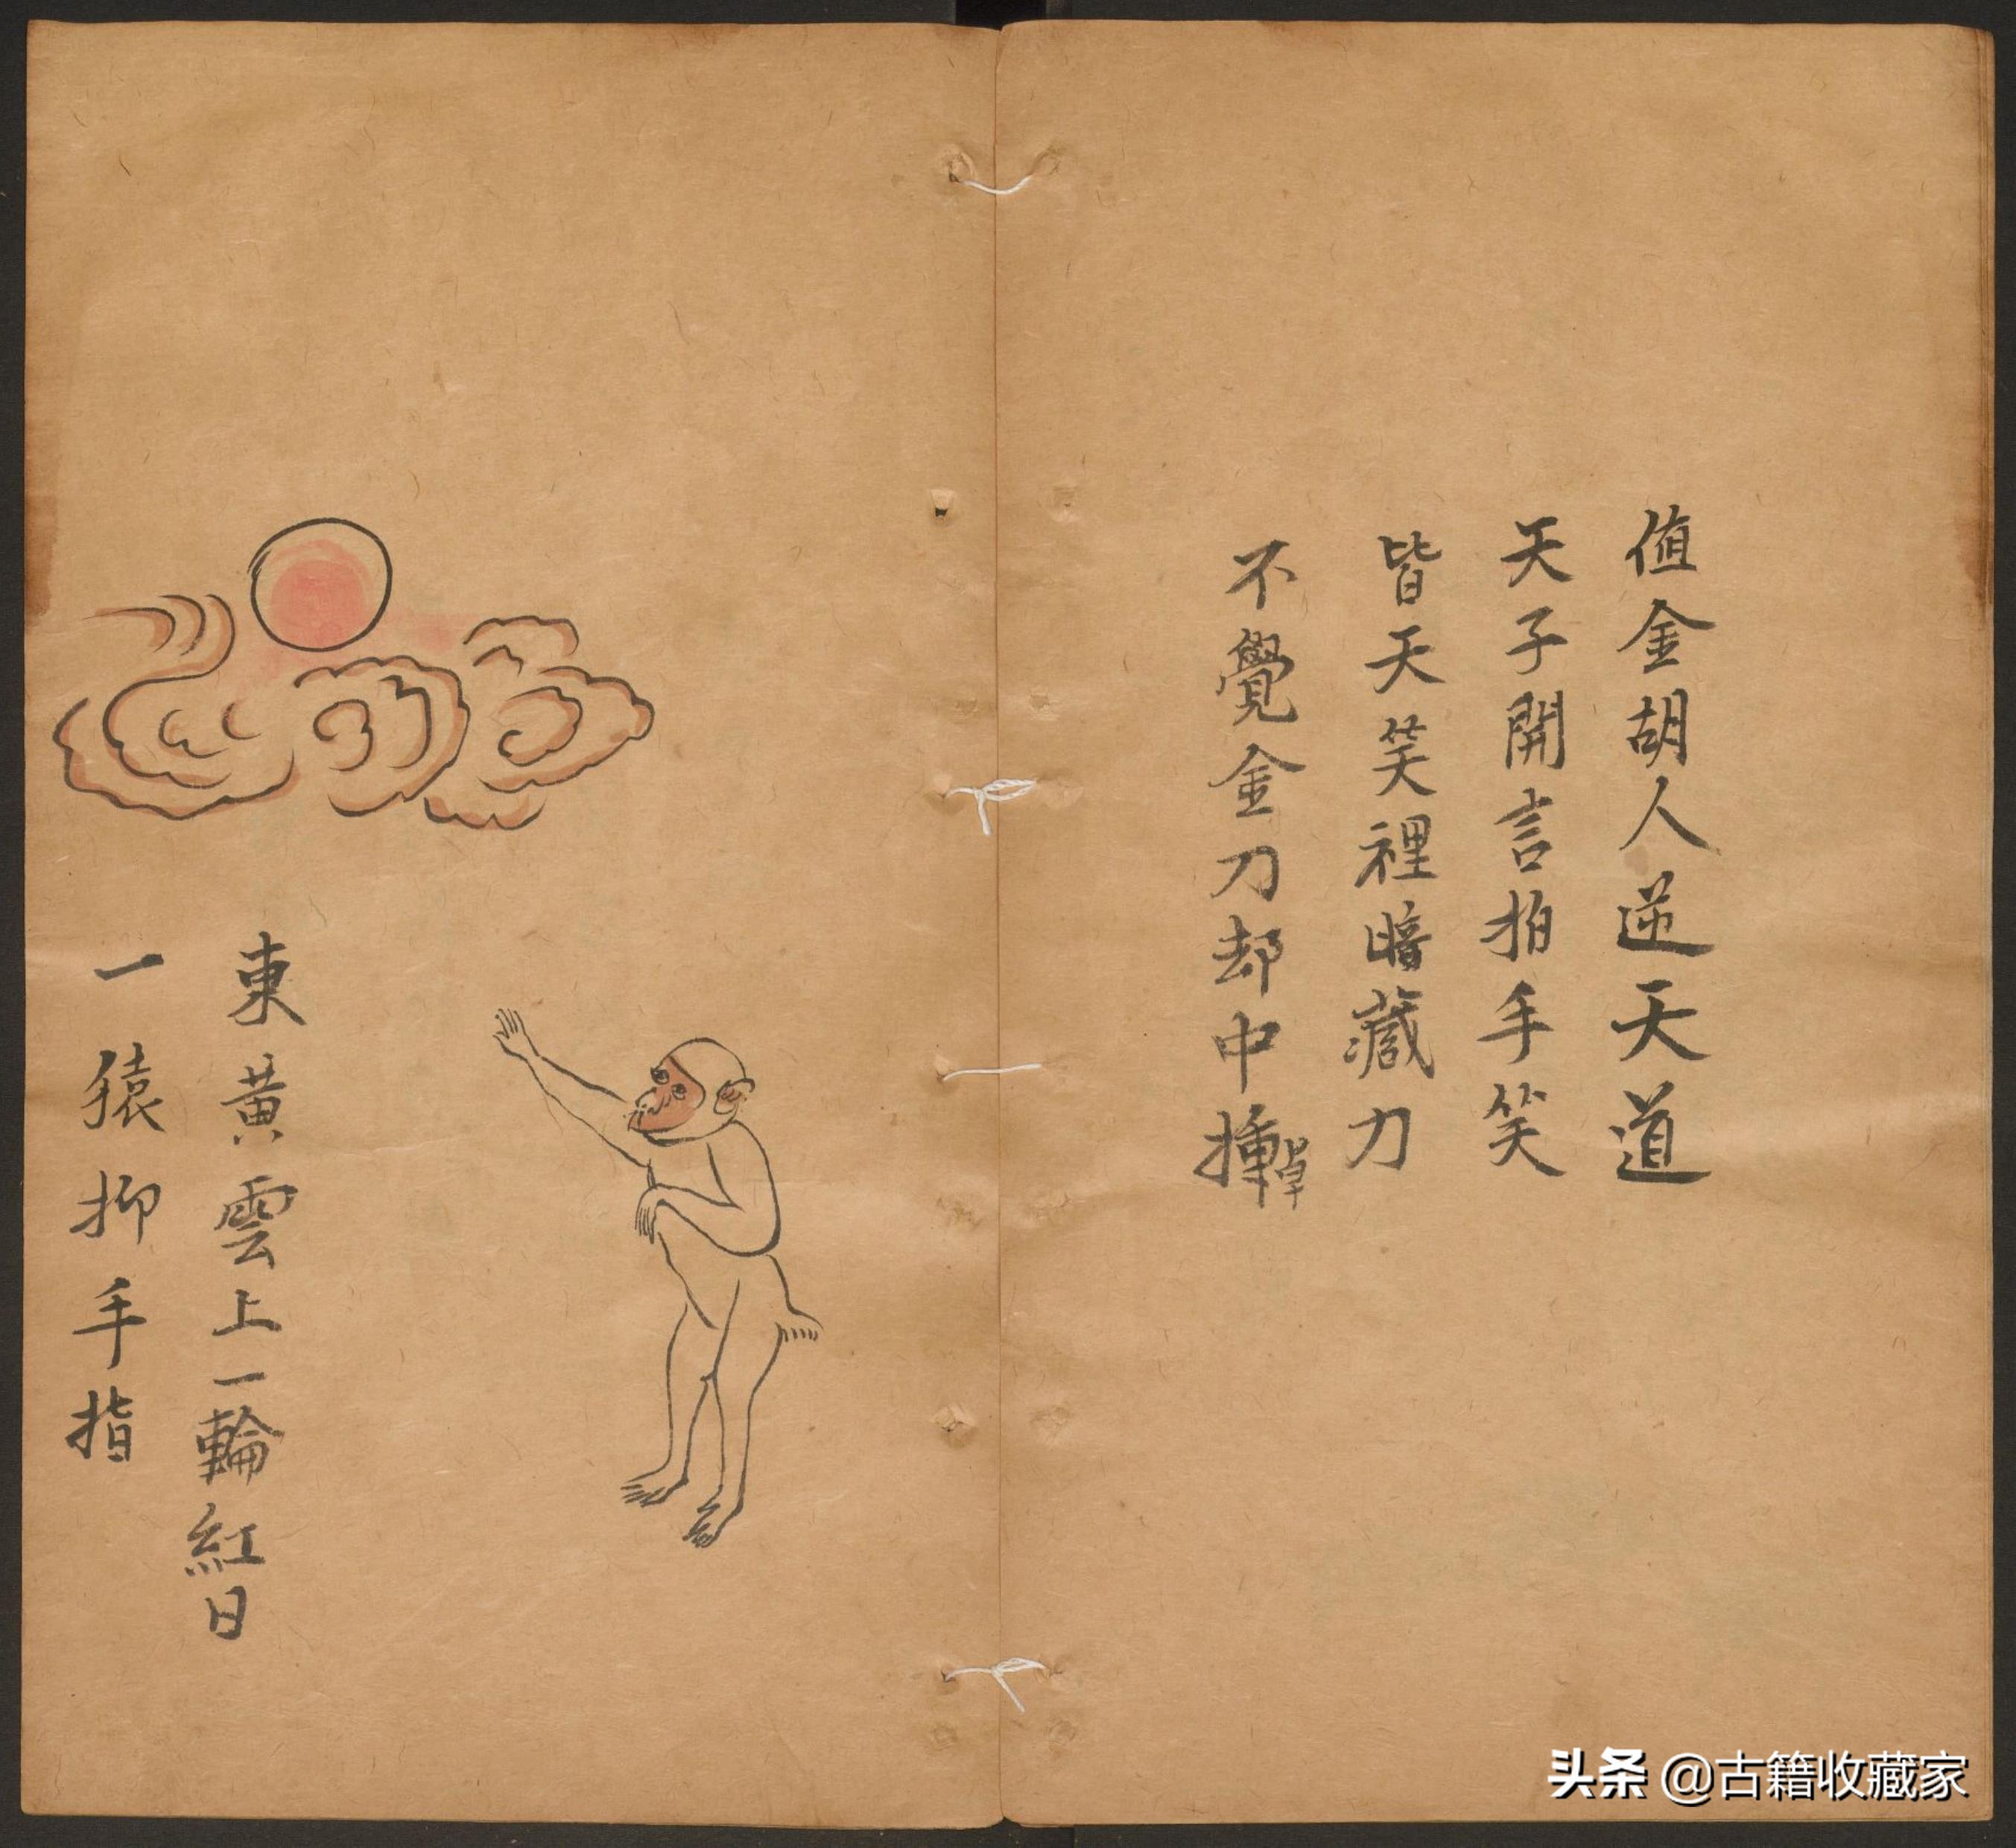 值金胡人逆天道
天子開言拍手笑
皆天笑裡暗藏刀
不覺金刀却中揰
東黃雲上一輪紅日
一猿抑手指
头条 @古籍收藏家